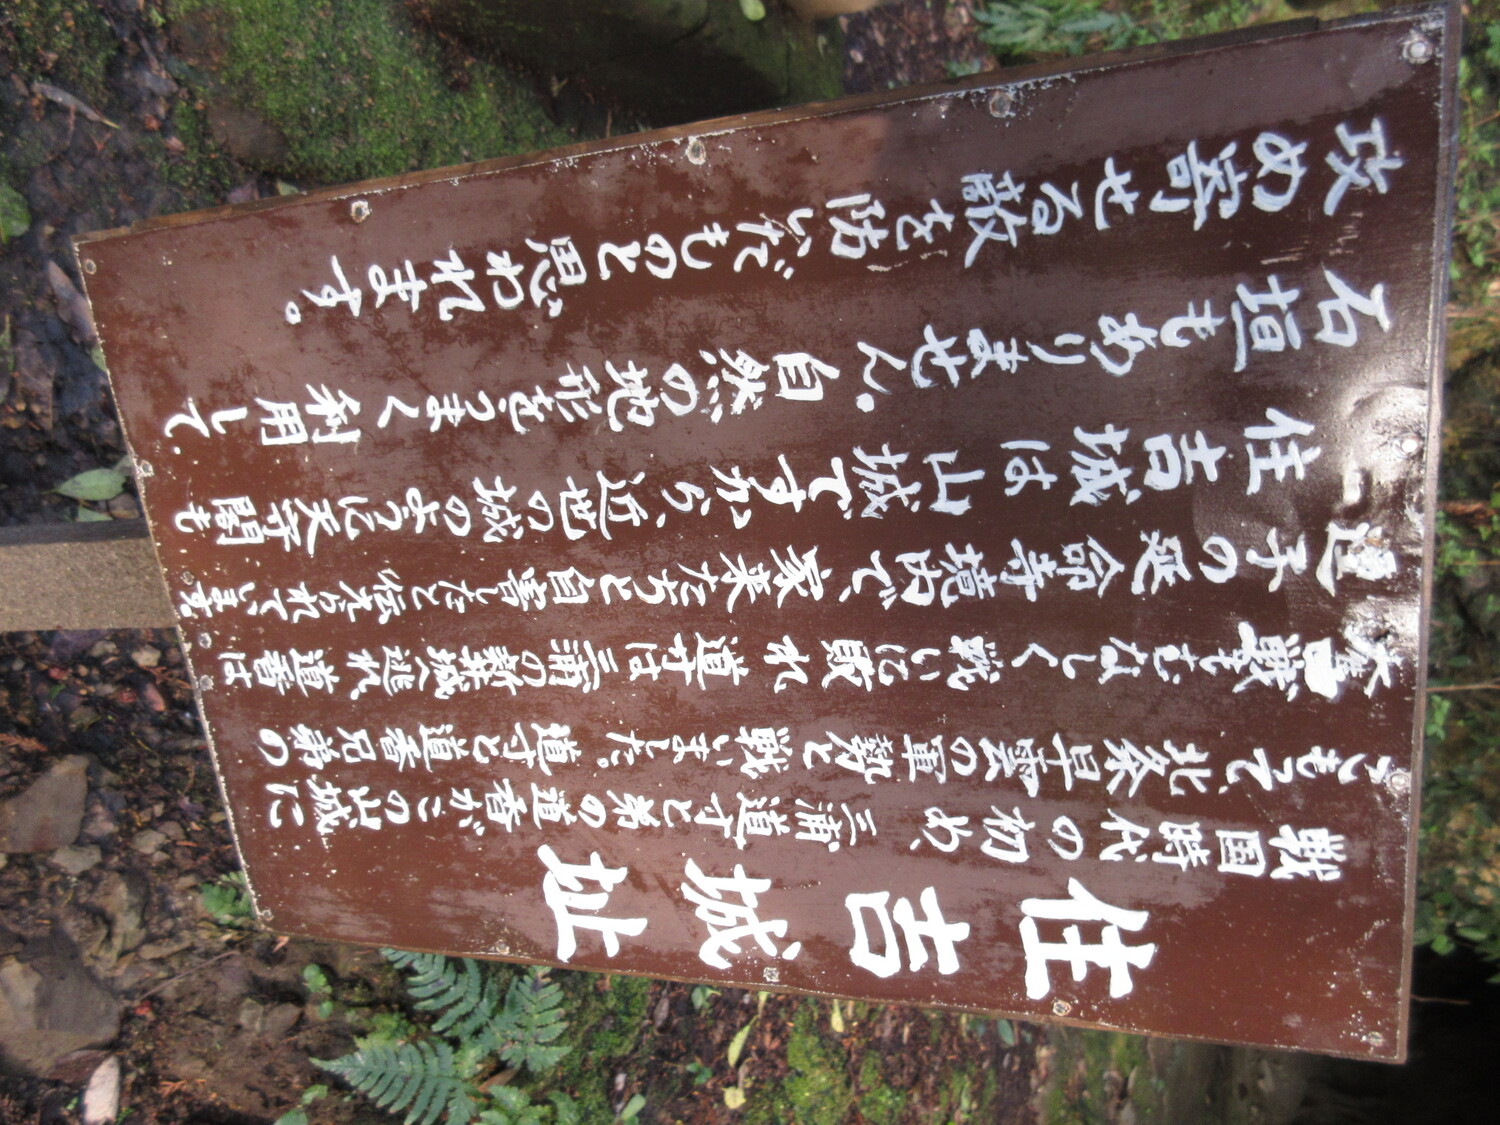 住吉城址
戦国時代の初め、三浦道寸と弟の道香がこの山城に
こもって、北条早雲の軍勢と戦いました。道寸と道香兄弟の
奮戦もむなしく戦いに敗れ 道寸は三浦の新城へ逃れ、道香は
逗子の延命寺境内で、家来たちと自害したと伝えられています。
住吉城は山城ですから、近世の城のように天守閣も
石垣もありません。自然の地形をうまく利用して
攻め寄せる敵を防いだものと思われます。